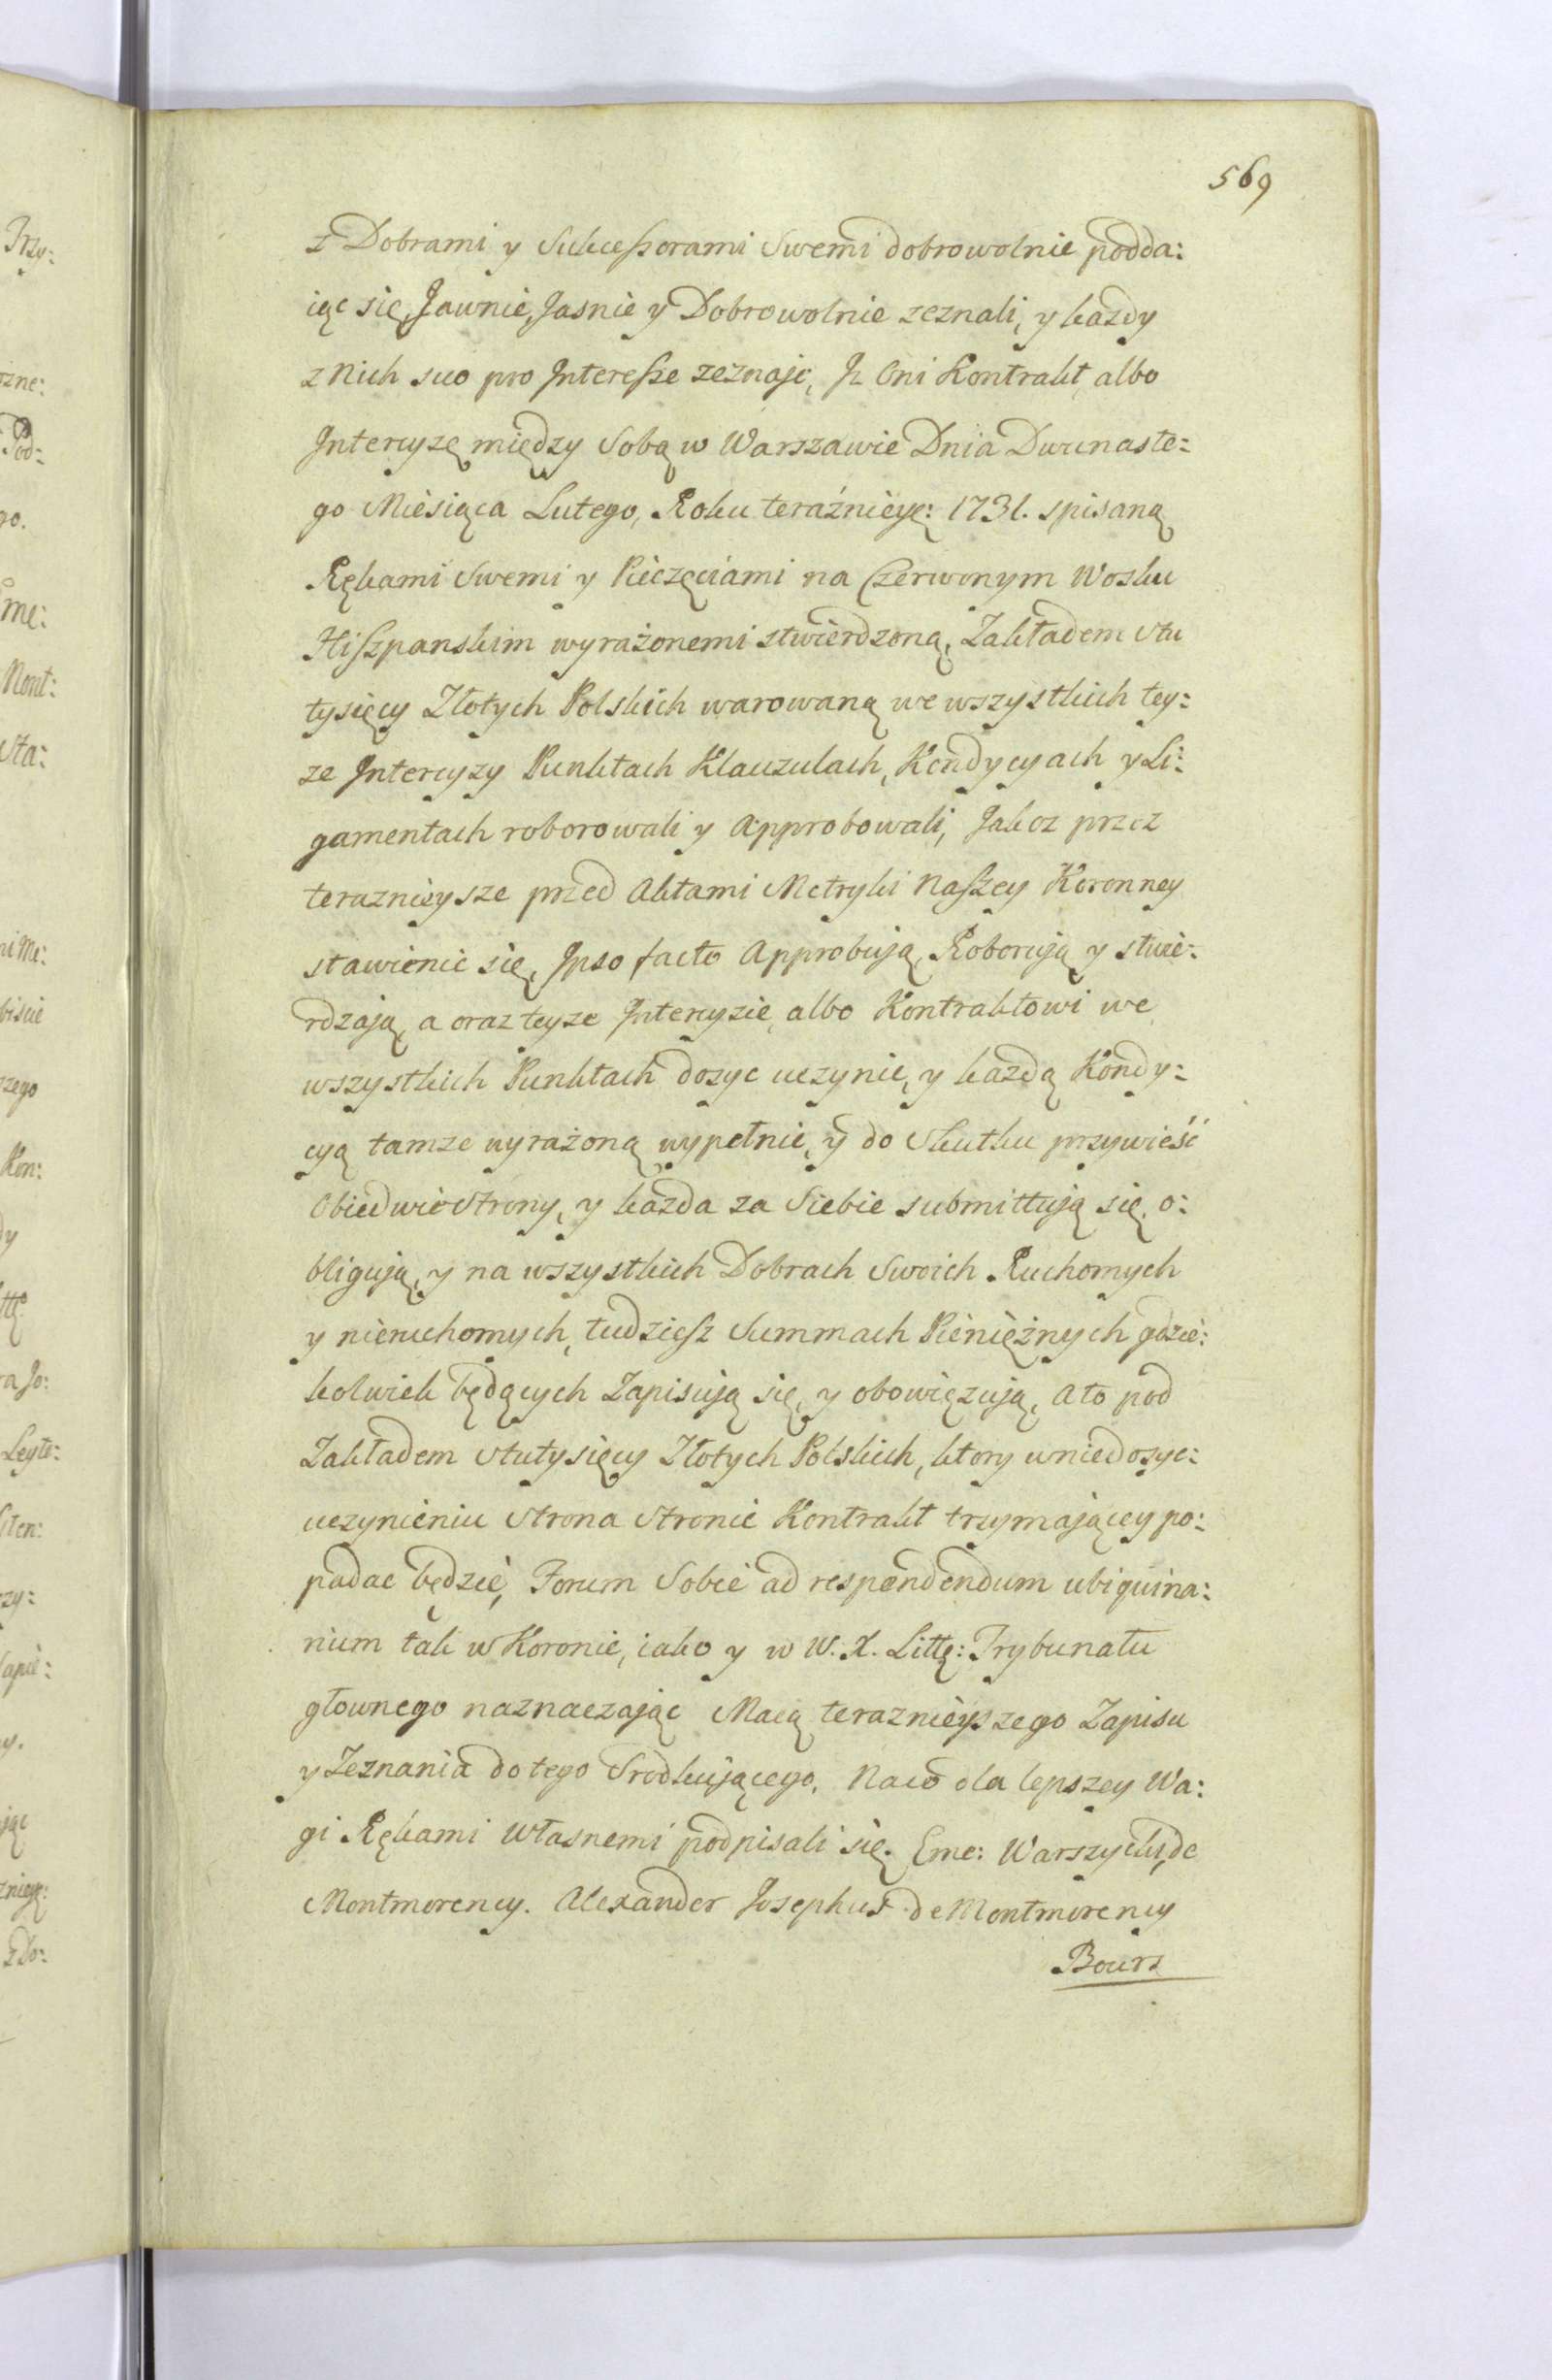 569
z Dobrami y Sukceßorami Swemi dobrowolnie podda:
iąc się, Jawnie, Jasnie y Dobrowolnie zeznali, y każdy
z Nich suo pro Intereße zeznaje, Jz Oni Kontrakt albo
Intercyzę między Sobą w Warszawie Dnia Dwunaste:
go Miesiąca Lutego, Roku teraźnieyę: 1731. spisaną
Rękami Swemi y Pieczęciami na Czerwonym Wosku
Hiszpanskim wyrażonemi stwierdzoną, Zakładem Stu
tysięcy Złotych Polskich warowaną we wszystkich tey:
ze Intercyzy Punktach Klauzulach, Kondycyach y Li:
gamentach roborowali y Approbowali, Jakoz przez
teraznieysze przed Aktami Metryki Naszey Koronney
stawienie się, Ipso facto Approbują, Roborują y stwie:
rdzają, a oraz teyze Intercyzie, albo Kontraktowi we
wszystkich Punktach dosyc uczynic, y każdą Kondy:
cyą tamze wyrażoną wypełnic, y do Skutku przywieść
Obiedwie Strony, y kazda za Siebie submittują się, o:
bligują, y na wszystkich Dobrach Swoich Ruchomych
y nieruchomych, tudziesz Summach Pieniężnych gdzie:
kolwiek będących Zapisują się, y obowięzują, A to pod
Zakładem Stutysięcy Złotych Polskich, ktory w niedosyc:
uczynieniu Strona Stronie Kontrakt trzymaiącey po:
padac będzie, Forum Sobie ad respondendum ubiquina:
rium tak w Koronie, iako y w W. X. Littę: Trybunału
głownego naznaczając Mocą teraznieyszego Zapisu
y Zeznania do tego Srodkującego. Naco dla lepszey Wa:
gi Rękami Własnemi podpisali się. Eme: Warszycki, de
Montmorency. Alexander Josephus de Montmorency
Bours